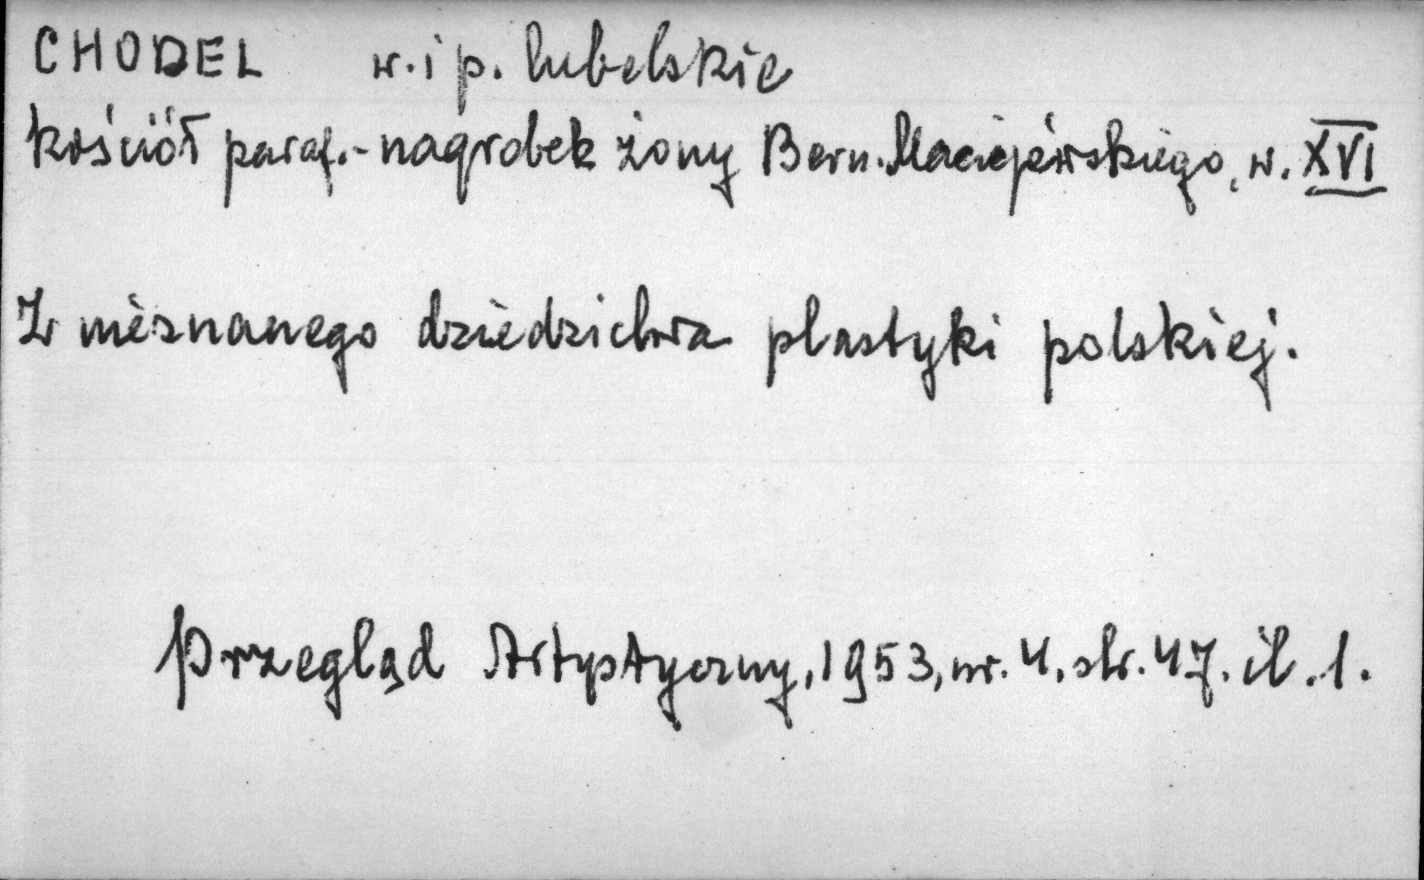 CHODEL w. i p. lubelskie
kościół paraf. - nagrobek żony Bern. Maciejewskiego, w. XVI
Z nieznanego dziedzictwa plastyki polskiej.
Przegląd Artystyczny, 1953, nr. 4, str. 47. il. 1.